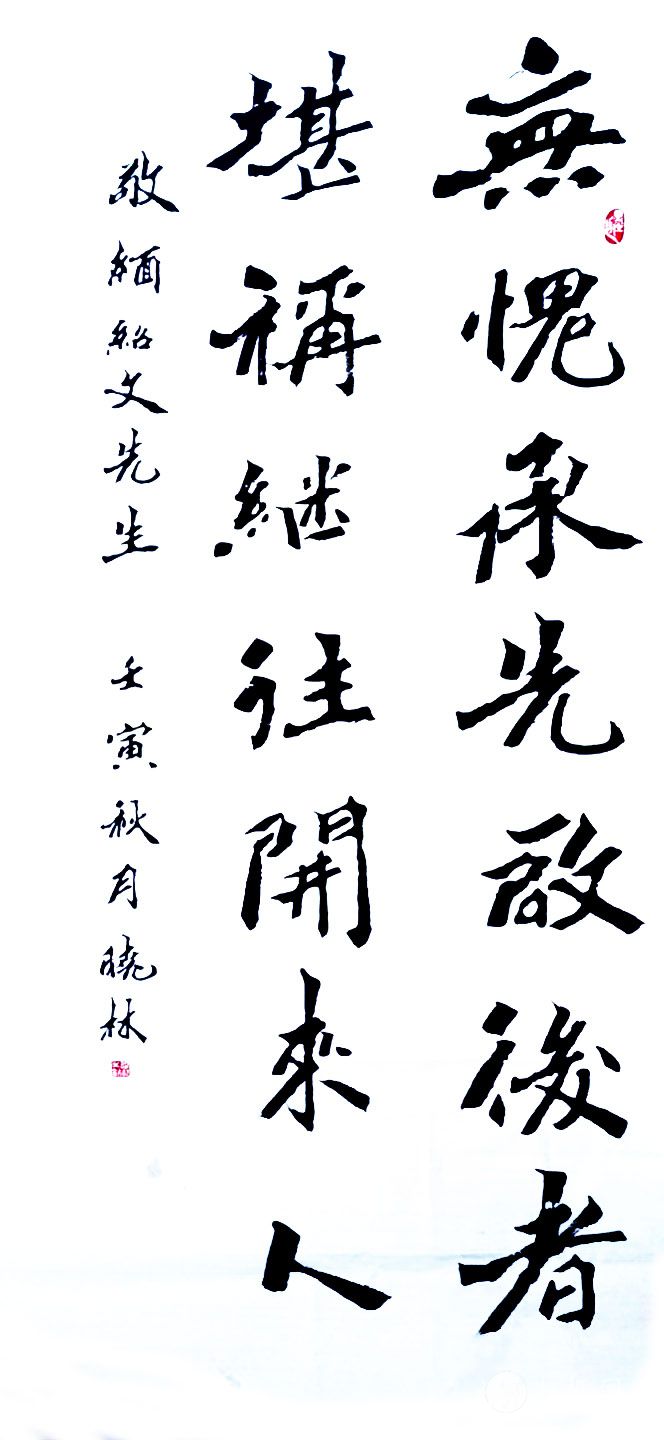 無愧承先啟後者
堪稱継往開来人
敬緬紹文先生 壬寅秋月曉林